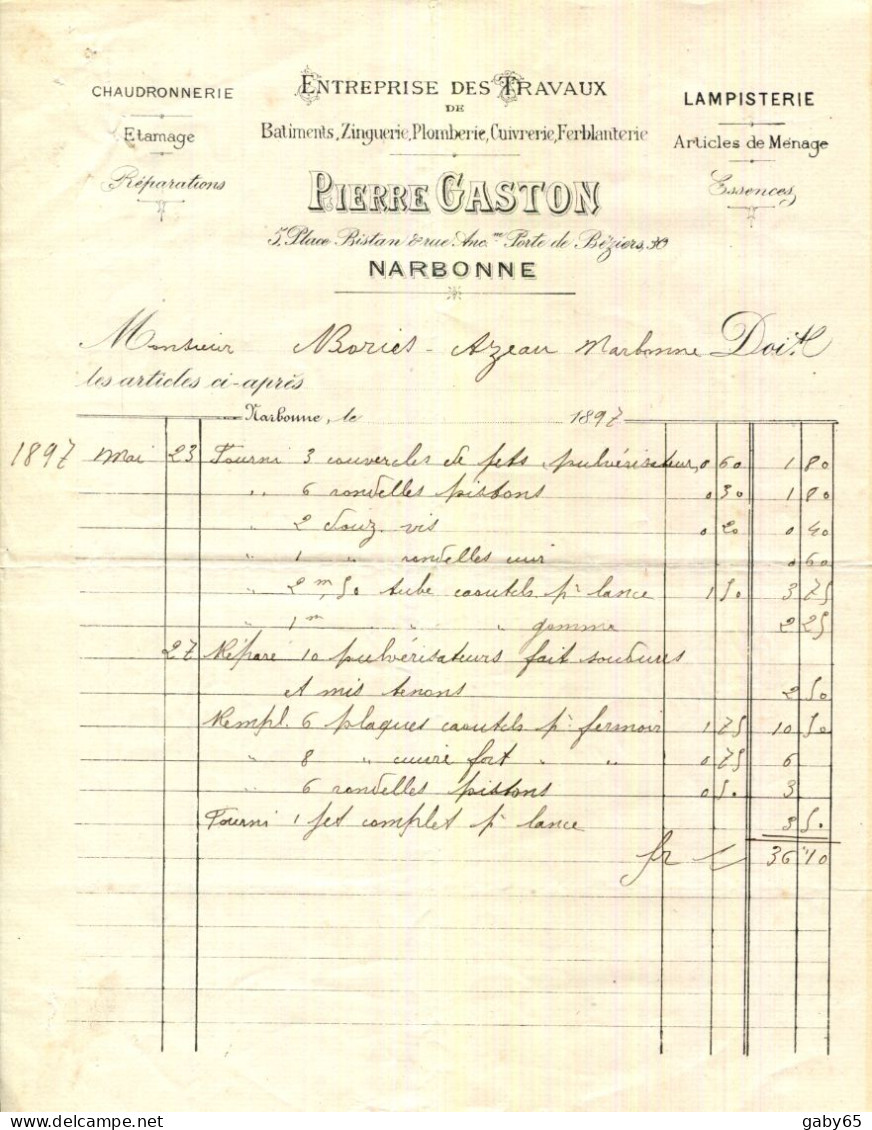 CHAUDRONNERIE
Etamage
Réparations
ENTREPRISE DES TRAVAUX
DE
Batiments, Zinguerie, Plomberie, Cuivrerie, Ferblanterie
PIERRE GASTON
5, Place Bistan & rue Anc.ne Porte de Béziers, 30
NARBONNE
LAMPISTERIE
Articles de Ménage
Essences
Monsieur Bories - Azeau Narbonne Doit
les articles ci-après
Narbonne, le 1897
1897 Mai 23 Fourni 3 couvercles de jets pulvérisateur, 0 60 1 80
" 6 rondelles pistons 0 30 1 80
" 2 douz. vis 0 20 0 40
" 1 " rondelles cuir 0 60
" 2m,50 tube caoutch. pr lance 1 50 3 75
" 1m " " gomme 2 25
27 Réparé 10 pulvérisateurs fait soudures
et mis tenons 2 50
Rempl. 6 plaques caoutch pr fermoir 1 75 10 50
" 8 " cuivre fort " " 0 75 6
" 6 rondelles pistons 0 50 3
Fourni 1 jet complet pr lance 3 50
fr 36 10
gaby65